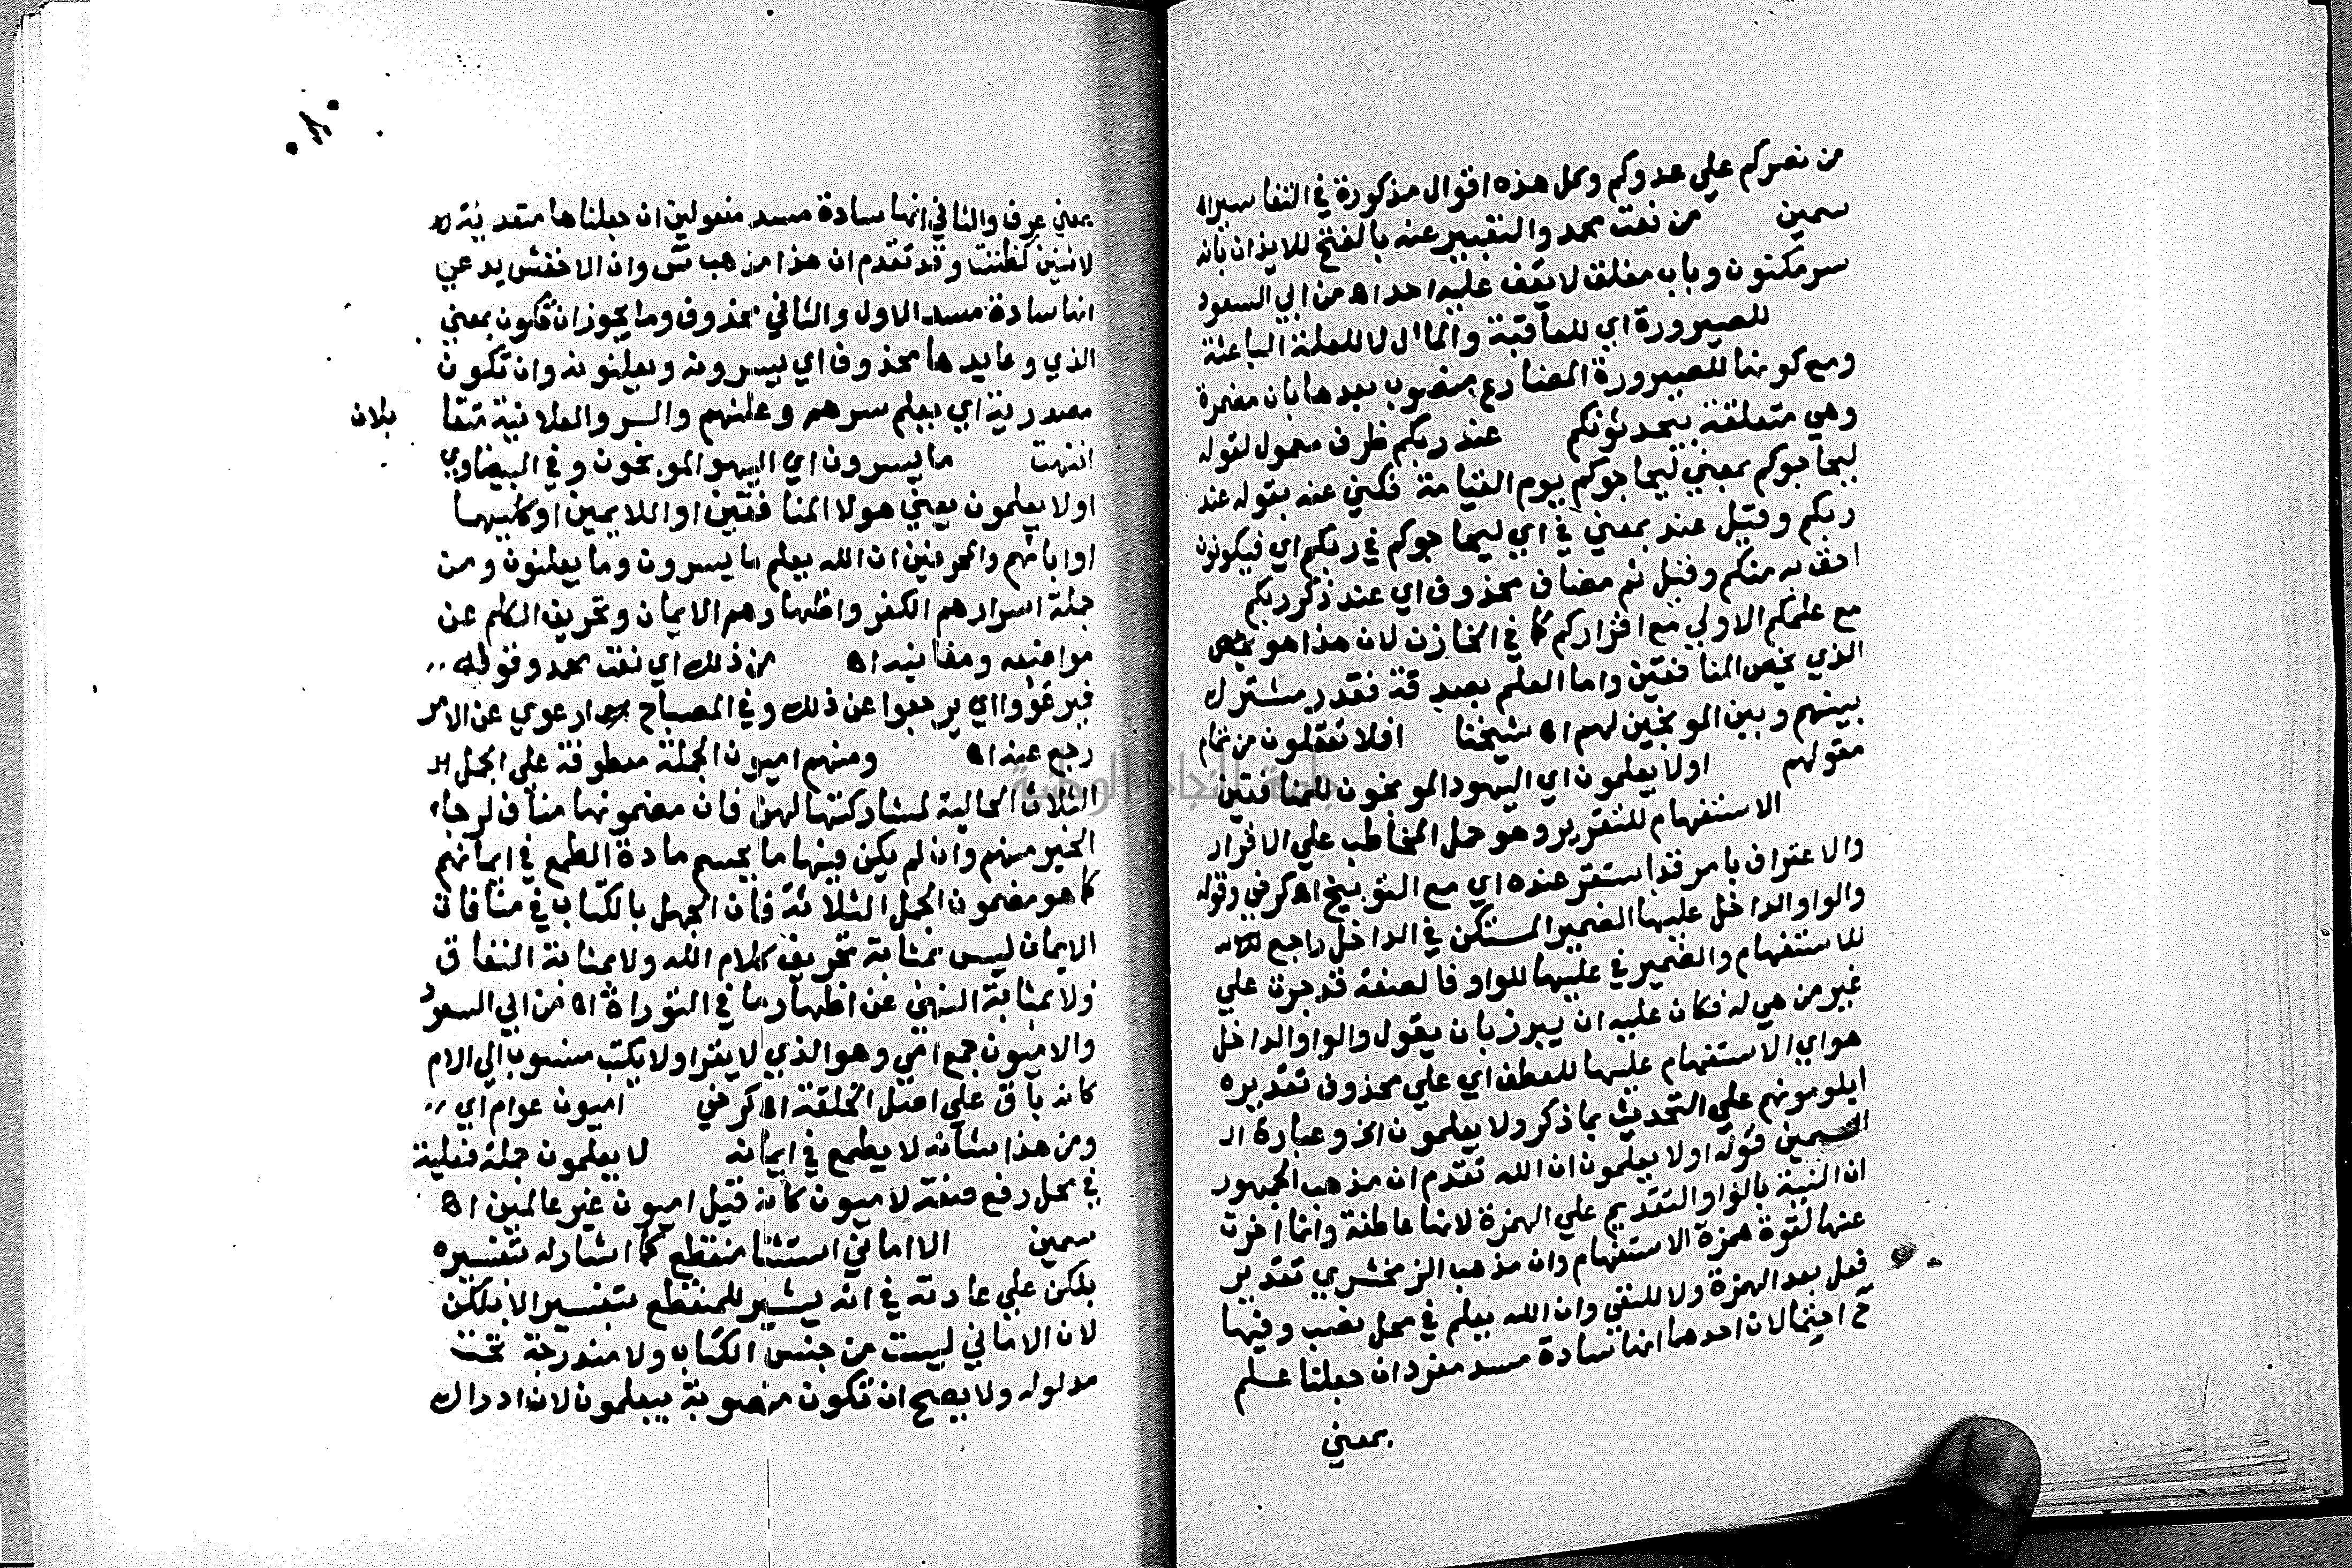 من نصركم علي عدوكم وكل هذه اقوال مذكورة في التفاسير اه
سمين من نعت محمد والتعبير عنه بالفتح للايذان بانه
سر مكنون وباب مغلق لا يقف عليه احد اه من ابي السعود
للصيرورة اي للعاقبة والمآل لا للعلة الباعثة
ومع كونها للصيرورة المضارع منصوب بعدها بان مضمرة
وهي متعلقة بيحدثونكم عند ربكم ظرف معمول لقوله
ليحاجوكم بمعني ليحاجوكم يوم القيامة فكني عنه بقوله عند
ربكم وقيل عند بمعني في اي ليحاجوكم في ربكم اي فيكونون
احق به منكم وقيل ثم مضاف محذوف اي عند ذكر ربكم
مع علمكم الاولي مع اقراركم كما في الخازن لان هذا هو
الذي يخص المنافقين واما العلم بصدقه فقدر مشترك
بينهم وبين الموبخين لهم اه شيخنا افلا تعقلون من تمام
مقولهم اولا يعلمون اي اليهود الموبخون للمنافقين
الاستفهام للتقرير وهو حمل المخاطب علي الاقرار
والاعتراف بامر قد استقر عنده اي مع التوبيخ اه كرخي وقوله
والواو الداخل عليها الضمير المستكن في الداخل راجع
للاستفهام والضمير في عليها للواو فالصفة قد جرت علي
غير من هي له فكان عليه ان يبرز بان يقول والواو الداخل
هو اي الاستفهام عليها للعطف اي علي محذوف تقديره
ايلومونهم علي التحديث بما ذكر ولا يعلمون الخ وعبارة ال
السمين قوله اولا يعلمون ان الله تقدم ان مذهب الجمهور
ان النية بالواو التقديم علي الهمزة لانها عاطفة وانما اخرت
عنها لقوة همزة الاستفهام وان مذهب الزمخشري تقدير
فعل بعد الهمزة ولا للنفي وان الله يعلم في محل نصب وفيها
ح احتمالان احدهما انها سادة مسد مفرد ان جعلنا علم
بمعني
بمعني عرف والثاني انها سادة مسد مفعولين ان جعلناها متعدية
لاثنين كظننت وقد تقدم ان هذا مذهب س وان الاخفش يدعي
انها سادة مسد الاول والثاني محذوف وما يجوز ان تكون بمعني
الذي وعايدها محذوف اي يسرونه ويعلنونه وان تكون
مصدرية اي يعلم سرهم وعلنهم والسر والعلانية متقا
بلان
انتهت ما يسرون اي اليهو الموبخون وفي البيضاوي
اولا يعلمون يعني هولا المنافقين او اللايمين او كليهما
او اياهم والمحرفين ان الله يعلم ما يسرون وما يعلنون ومن
جملة اسرارهم الكفر واظهارهم الايمان وتحريف الكلم عن
مواضعه ومعانيه اه من ذلك اي نعت محمد وقوله
فيرعووا اي يرجعوا عن ذلك وفي المصباح ارعوي عن الامر
رجع عنه اه ومنهم اميون الجملة معطوفة علي الجمل ال
الثلاث الحالية لمشاركتها لهن فان مضمونها مناف لرجاء
الخير منهم وان لم يكن فيها ما يحسم مادة الطمع في ايمانهم
كما هو مضمون الجمل الثلاثة فان الجهل بالكتاب في منافاة
الايمان ليس بمثابة تحريف كلام الله ولا بمثابة النفاق
ولا بمثابة النهي عن اظهار ما في التوراة اه من ابي السعود
والاميون جمع امي وهو الذي لا يقرا ولا يكتب منسوب الي الام
كانه باق علي اصل الخلقة اه كرخي اميون عوام اي
ومن هذا شانه لا يطمع في ايمانه لا يعلمون جملة فعلية
في محل رفع صفة لاميون كانه قيل اميون غير عالمين اه
سمين الا اماني استثنا منقطع كما اشار له بتفسيره
بلكن علي عادته في انه يشير للمنقطع بتفسير الا بلكن
لان الاماني ليست من جنس الكتاب ولا مندرجة تحت
مدلوله ولا يصح ان تكون منصوبة بيعلمون لان ادراك
جامعة النجاح الوطنية